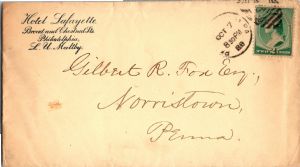 Hotel Lafayette
Broad and Chestnut Sts.
Philadelphia,
L. U. Maltby.
OCT 7
8 PM
Gilbert R. Fox Esq.,
Norristown,
Penna.